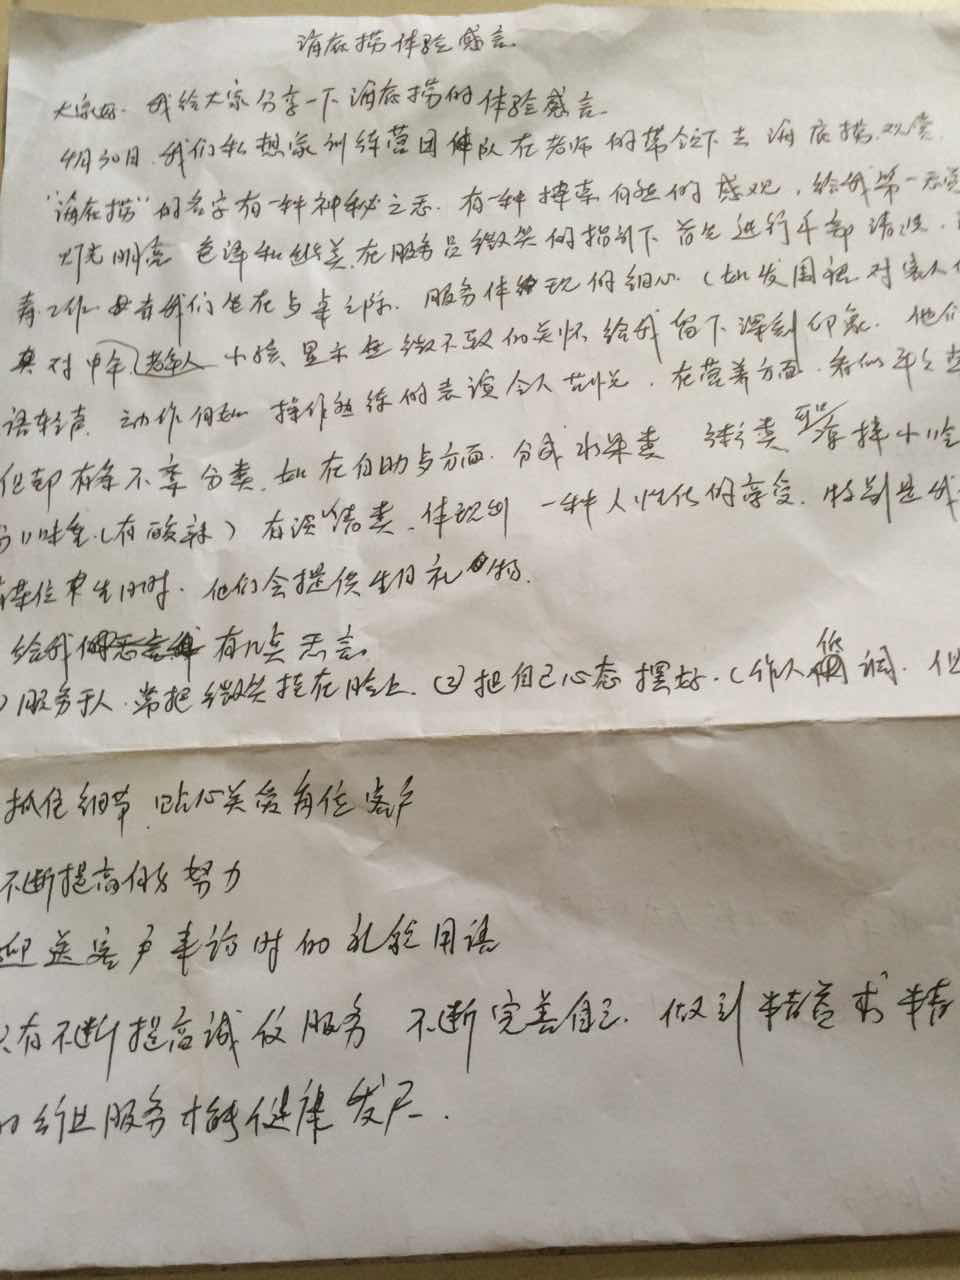 海底捞体验感言
大家好.我给大家分享一下海底捞的体验感言.
4月30日.我们私想家训练营团体队在老师的带领下去海底捞.观赏.
"海底捞"的名字有一种神秘之感.有一种捧菜自然的感观,给我第一感觉
灯光明亮 色泽和丝美.在服务员微笑的指引下 首先进行手部清洗.
毒工作.每在我们坐在与桌之际.服务体现的细心(如发围裙 对客人
真对中年、老年人 小孩 显示无微不致的关怀 给我留下深刻印象.他们
语轻声 动作自如 操作熟练的表演令人喜悦.在营养方面.看似平
但却有条不紊 分类.如在自助与方面.分成水果类 粥类 品择小吃
口味重(有酸辣)有谈 体现到一种人性化的享受.特别是我
某位 生日时.他们会提供生日礼物.
给我 有几点感言.
)服务于人.常把微笑挂在脸上.(2)把自己心态摆好.(作人低调.但
抓住细节.贴心关爱每位客户
不断提高 努力
迎送客户来访时的礼貌用语
只有不断提高诚信服务 不断完善自己.做到精益求精
的 服务才能健康发展.